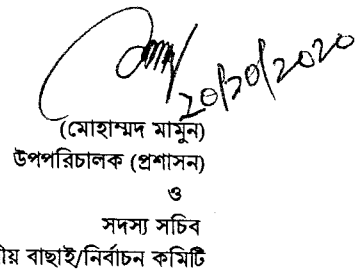 20/10/2020
(মোহাম্মদ মামুন)
উপপরিচালক (প্রশাসন)
ও
সদস্য সচিব
বাছাই/নির্বাচন কমিটি